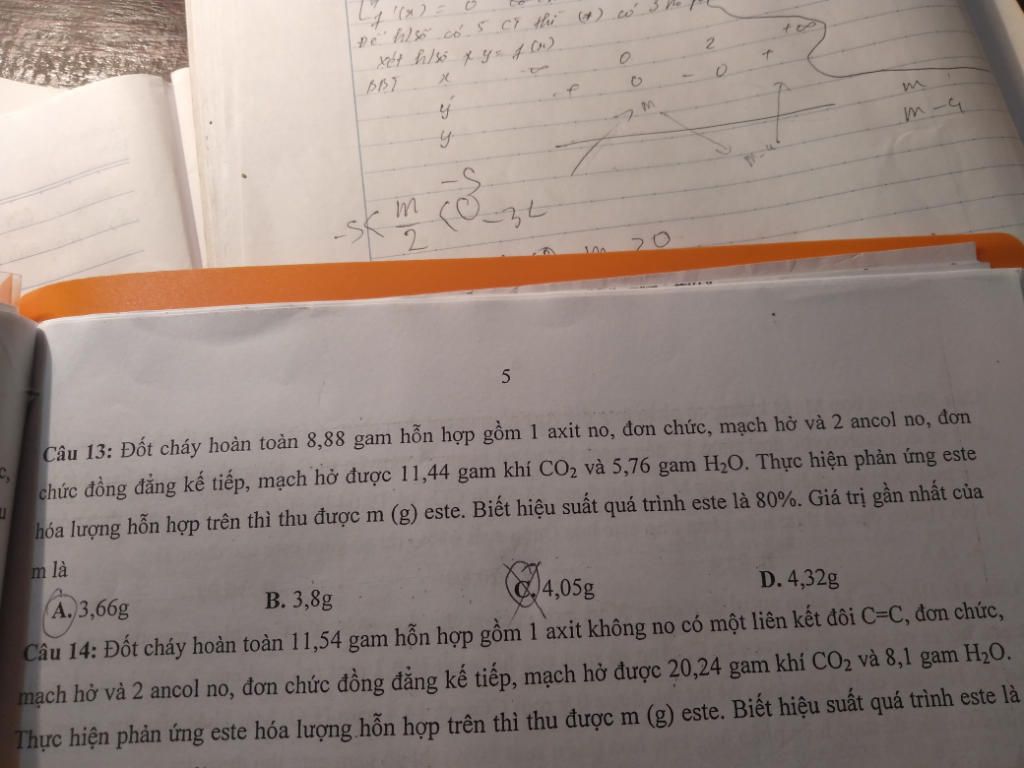 Để h/số có 5 CT thì (*) có 3 no
xét h/số y = f(x)
BBT x -∞ 0 2 +∞
y' + 0 - 0 +
y m m-4
m
m-4
-5
-5< m/2 <0
m >0
5
Câu 13: Đốt cháy hoàn toàn 8,88 gam hỗn hợp gồm 1 axit no, đơn chức, mạch hở và 2 ancol no, đơn
chức đồng đẳng kế tiếp, mạch hở được 11,44 gam khí CO₂ và 5,76 gam H₂O. Thực hiện phản ứng este
hóa lượng hỗn hợp trên thì thu được m (g) este. Biết hiệu suất quá trình este là 80%. Giá trị gần nhất của
m là
A. 3,66g B. 3,8g C. 4,05g D. 4,32g
Câu 14: Đốt cháy hoàn toàn 11,54 gam hỗn hợp gồm 1 axit không no có một liên kết đôi C=C, đơn chức,
mạch hở và 2 ancol no, đơn chức đồng đẳng kế tiếp, mạch hở được 20,24 gam khí CO₂ và 8,1 gam H₂O.
Thực hiện phản ứng este hóa lượng hỗn hợp trên thì thu được m (g) este. Biết hiệu suất quá trình este là